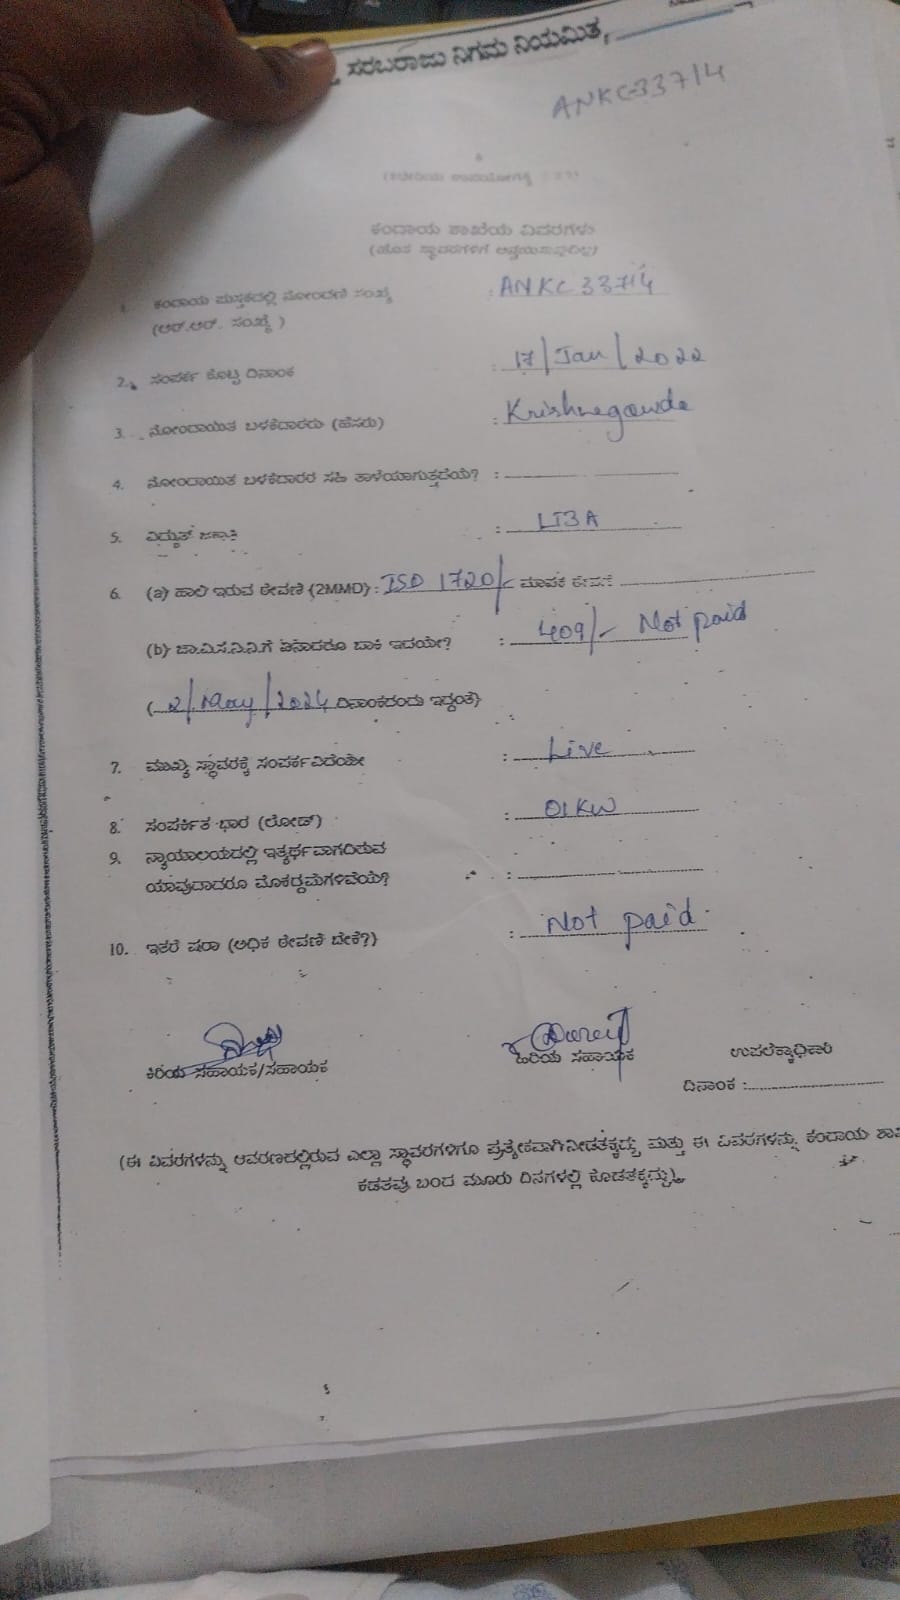 ಸರಬರಾಜು ನಿಗಮ ನಿಯಮಿತ,
ANKC-33714
ಕಂದಾಯ ಶಾಖೆಯ ವಿವರಗಳು
1. ಕಂದಾಯ ಪುಸ್ತಕದಲ್ಲಿ ನೋಂದಣಿ ಸಂಖ್ಯೆ : ANKC 33714
(ಆರ್.ಆರ್. ಸಂಖ್ಯೆ)
2. ಸಂಪರ್ಕ ಕೊಟ್ಟ ದಿನಾಂಕ : 17/Jan/2022
3. ನೋಂದಾಯಿತ ಬಳಕೆದಾರರು (ಹೆಸರು) : Krishnegowda
4. ನೋಂದಾಯಿತ ಬಳಕೆದಾರರ ಸಹಿ ತಾಳೆಯಾಗುತ್ತದೆಯೇ? :
5. ವಿದ್ಯುತ್ ಜಕಾತಿ : LT3A
6. (a) ಹಾಲಿ ಇರುವ ಠೇವಣಿ (2MMD) : ISD 1720/- ಮಾಪಕ ಠೇವಣಿ
(b) ಚಾ.ವಿ.ಸ.ನಿ.ನಿ.ಗೆ ಏನಾದರೂ ಬಾಕಿ ಇದೆಯೇ? : 409/- Not paid
(2/May/2024 ದಿನಾಂಕದಂದು ಇದ್ದಂತೆ)
7. ಮುಖ್ಯ ಸ್ಥಾವರಕ್ಕೆ ಸಂಪರ್ಕವಿದೆಯೇ : Live
8. ಸಂಪರ್ಕಿತ ಭಾರ (ಲೋಡ್) : 01KW
9. ನ್ಯಾಯಾಲಯದಲ್ಲಿ ಇತ್ಯರ್ಥವಾಗದಿರುವ
ಯಾವುದಾದರೂ ಮೊಕದ್ದಮೆಗಳಿವೆಯೇ? :
10. ಇತರೆ ಷರಾ (ಅಧಿಕ ಠೇವಣಿ ಬೇಕೆ?) : Not paid.
ಕಿರಿಯ ಸಹಾಯಕ/ಸಹಾಯಕ ಹಿರಿಯ ಸಹಾಯಕ ಉಪಲೆಕ್ಕಾಧಿಕಾರಿ
ದಿನಾಂಕ :
(ಈ ವಿವರಗಳನ್ನು ಆವರಣದಲ್ಲಿರುವ ಎಲ್ಲಾ ಸ್ಥಾವರಗಳಿಗೂ ಪ್ರತ್ಯೇಕವಾಗಿ ನೀಡತಕ್ಕದ್ದು ಮತ್ತು ಈ ವಿವರಗಳನ್ನು ಕಂದಾಯ
ಕಡತವು ಬಂದ ಮೂರು ದಿನಗಳಲ್ಲಿ ಕೊಡತಕ್ಕದ್ದು).